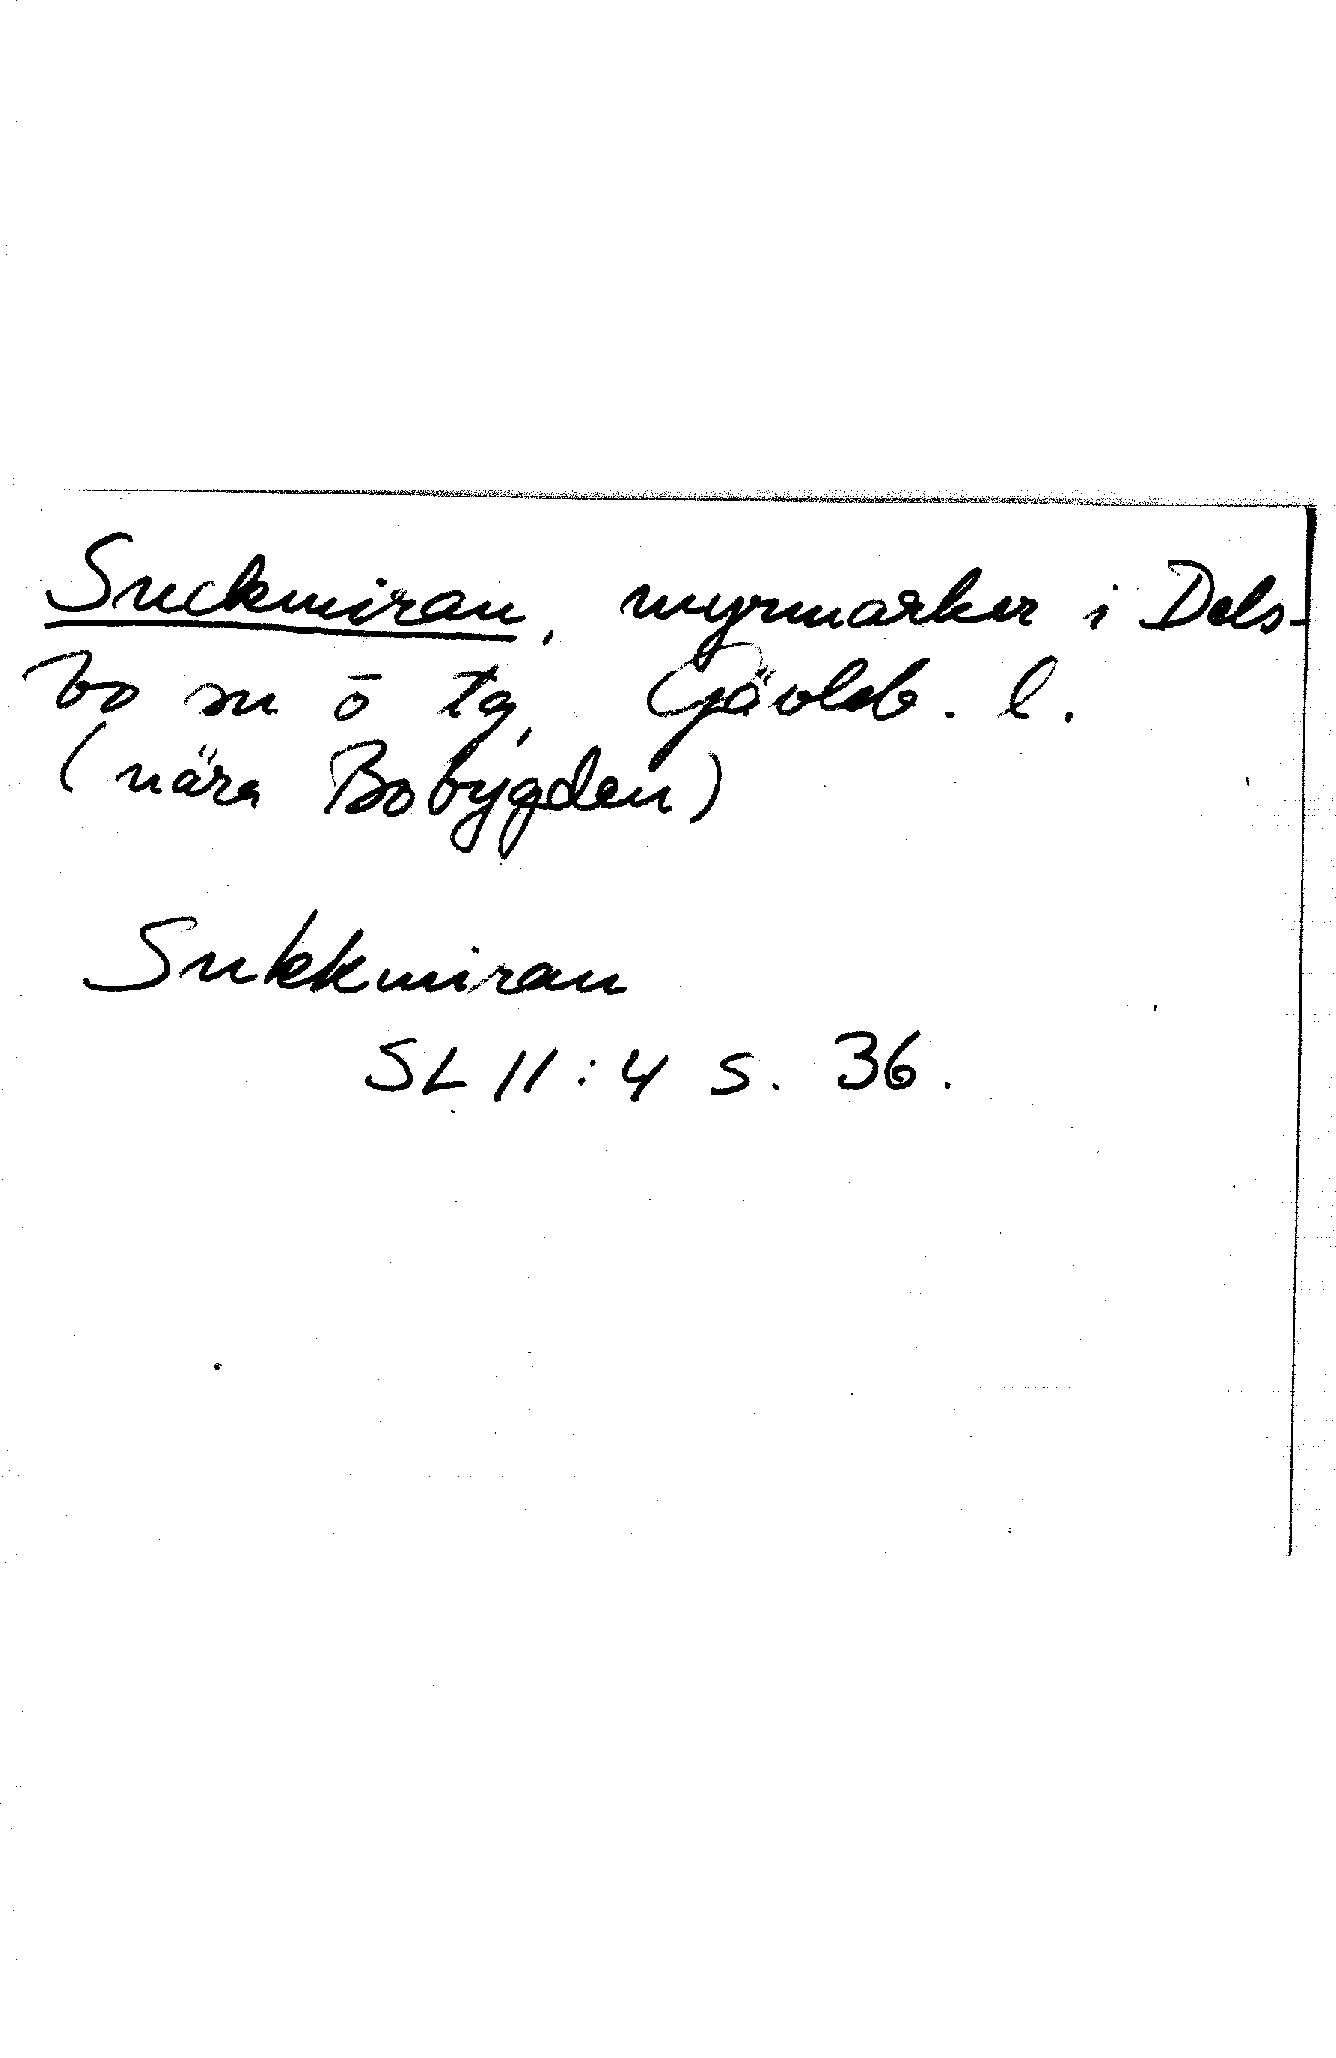 Suckmiran, myrmarker i Dels-
bo sn o tg, Gävleb. l.
(nära Bobygden)
Sukkmiran
SL 11:4 s. 36.